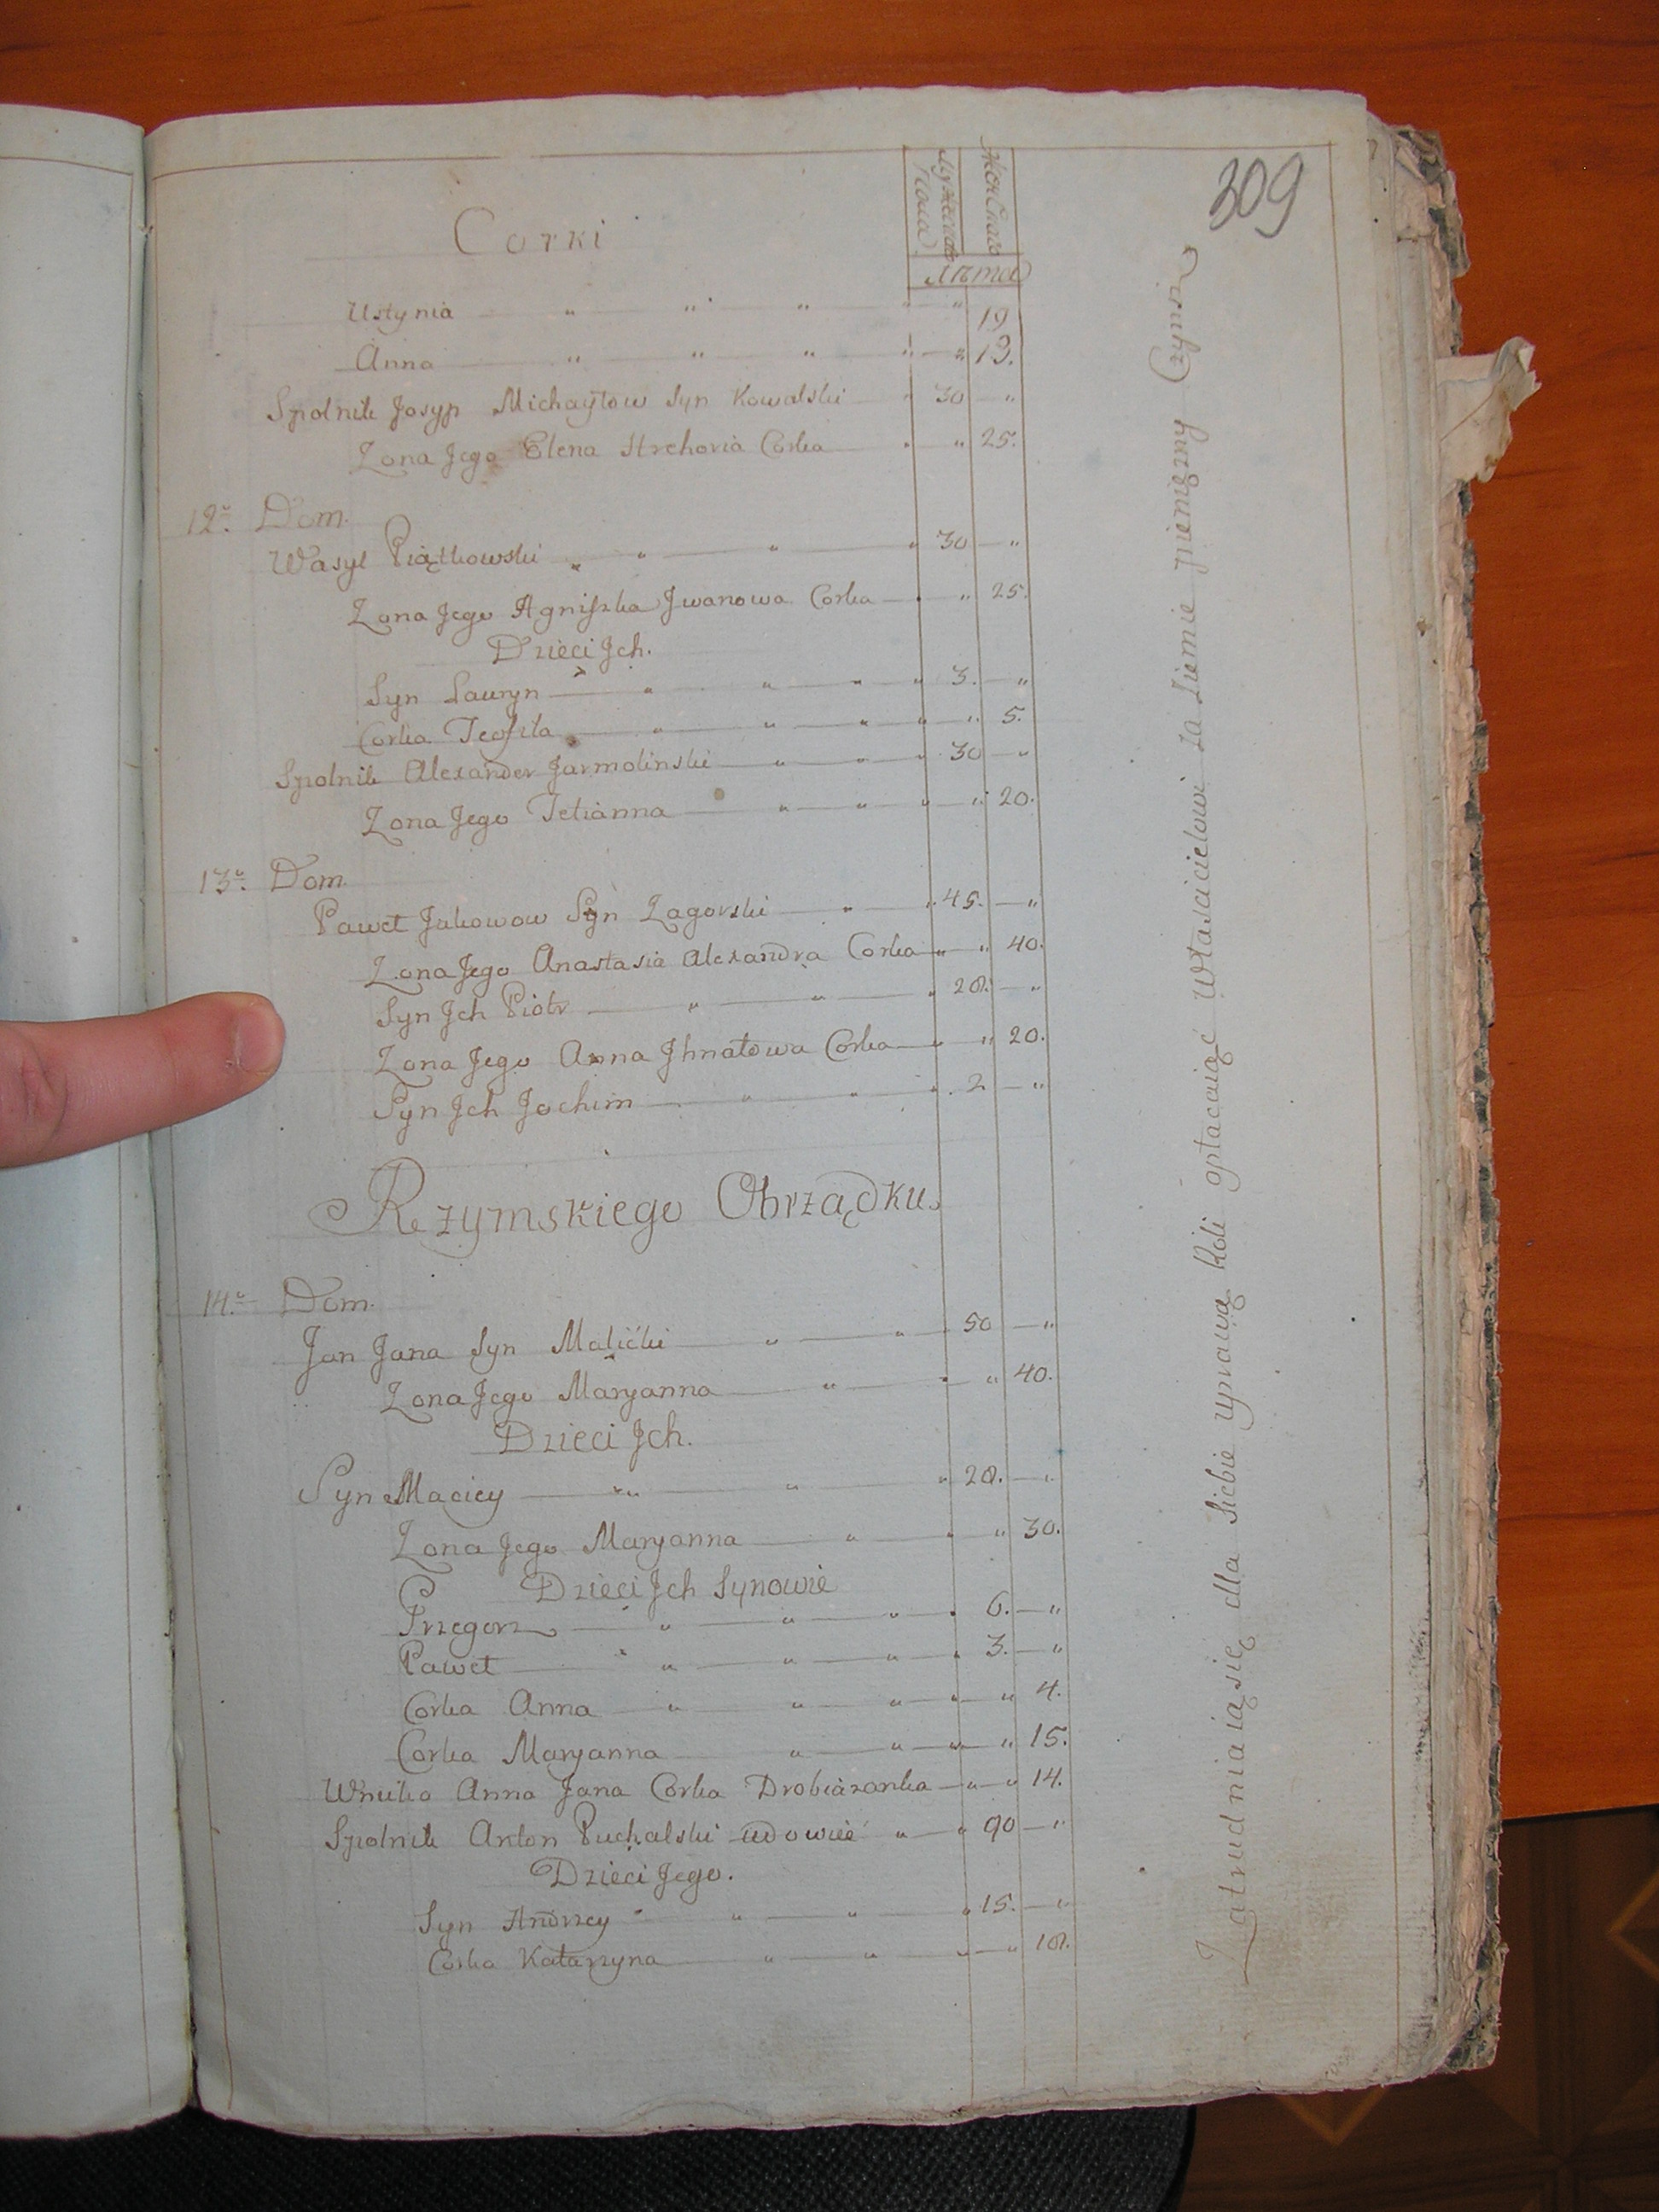 309
Мужеска Пола
Женскаго
Лѣта
Corki
Ustynia " " " " " 19
Anna " " " " " 13.
Spolnik Josyp Michayłow Syn Kowalski " 30 "
Zona Jego Elena Hrehoria Corka " " 25.
12o. Dom.
Wasyl Piątkowski " " " " 30 "
Zona Jego Agniszka Jwanowa Corka " " 25.
Dzieci Jch.
Syn Lauryn " " " " 3. "
Corka Teofila " " " " " 5.
Spolnik Alexander Jarmolinski " " " 30 "
Zona Jego Tetianna " " " " 20.
13o. Dom.
Paweł Jakowow Syn Zagorski " " 45. "
Zona Jego Anastasia Alexandra Corka " " 40.
Syn Jch Piotr " " " 20. "
Zona Jego Anna Jhnatowa Corka " " 20.
Syn Jch Jochim " " " 2 "
Rzymskiego Obrządku.
14o. Dom.
Jan Jana Syn Malicki " " " 50 "
Zona Jego Maryanna " " " 40.
Dzieci Jch.
Syn Maciey " " " 20. "
Zona Jego Maryanna " " " 30.
Dzieci Jch Synowie
Grzegorz " " " " 6. "
Paweł " " " " " 3. "
Corka Anna " " " " " 4.
Corka Maryanna " " " " 15.
Wnuka Anna Jana Corka Drobiazonka " " 14.
Spolnik Anton Puchalski wdowiec " " 90 "
Dzieci Jego.
Syn Andrzey " " " " 15. "
Corka Katarzyna " " " " 10.
Zatrudniaią się dla siebie uprawą Roli opłacaiąc Właścicielowi za Ziemie pieniężny Czynsz